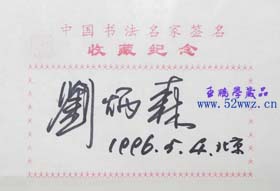 中国书法名家签名
收藏纪念
至瑞學藏品
www.52wwz.cn
劉炳森
1996.5.4.北京